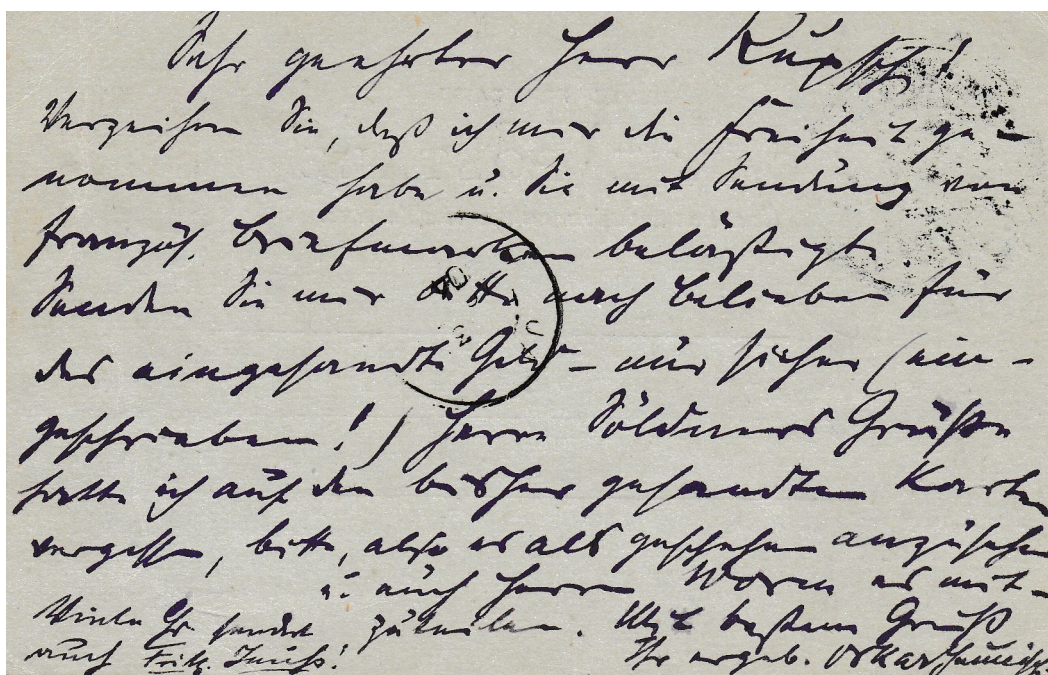 Sehr geehrter Herr Kupsch!
Verzeihen Sie, daß ich mir die Freiheit ge-
nommen habe u. Sie mit Sendung von
französ. Briefmarken belästigt.
Senden Sie mir bitte nach belieben für
das eingesandte Geld – nur sicher (ein-
geschrieben!) Herrn Söldners Grüße
hatte ich auf den bisher gesandten Karten
vergessen, bitte, also es als geschehen anzusehen
u. auch Herrn Worm es mit-
zuteilen. Mit bestem Gruß
Ihr ergeb. Oskar
Viele Gr. sendet
auch Fritz